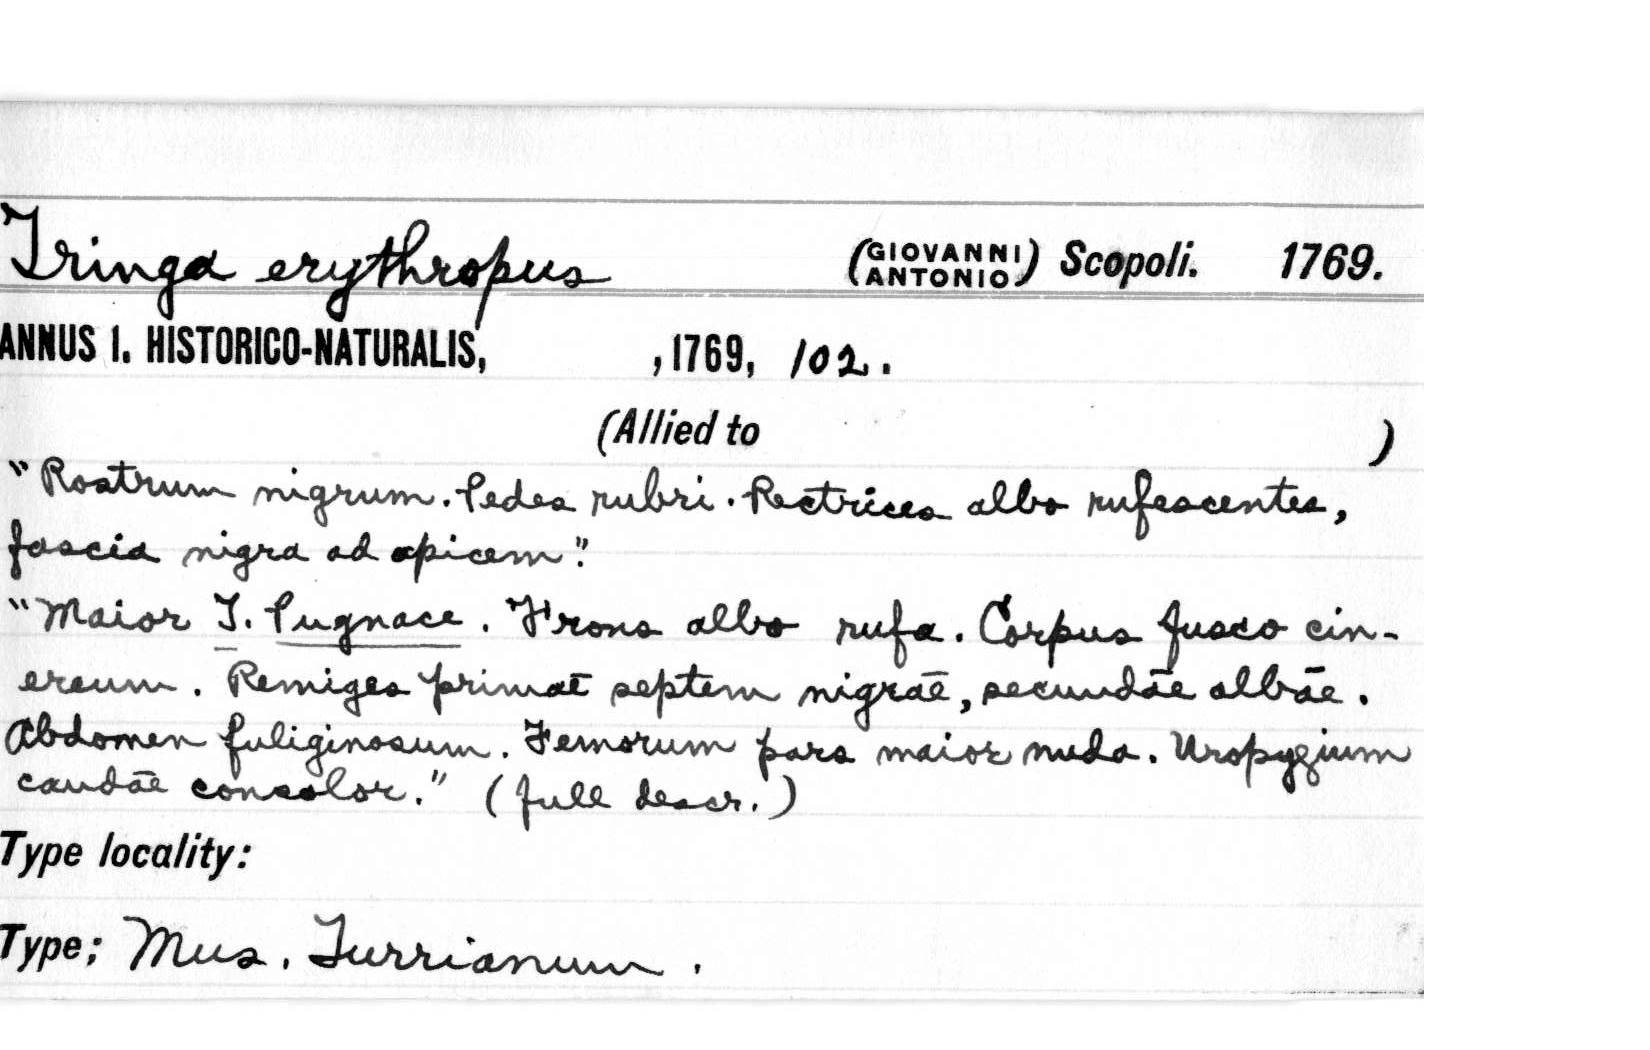 Tringa erythropus (GIOVANNI ANTONIO) Scopoli. 1769.
ANNUS I. HISTORICO-NATURALIS, , 1769, 102.
(Allied to )
"Rostrum nigrum. Pedes rubri. Rectrices albo rufescentes,
fascia nigra ad apicem."
"Maior T. Pugnace. Frons albo rufa. Corpus fusco cin-
ereum. Remiges primaē septem nigraē, secundāe albāe.
Abdomen fuliginosum. Femorum pars maior nuda. Uropygium
caudāe consolor." (full descr.)
Type locality:
Type; Mus. Turrianum.